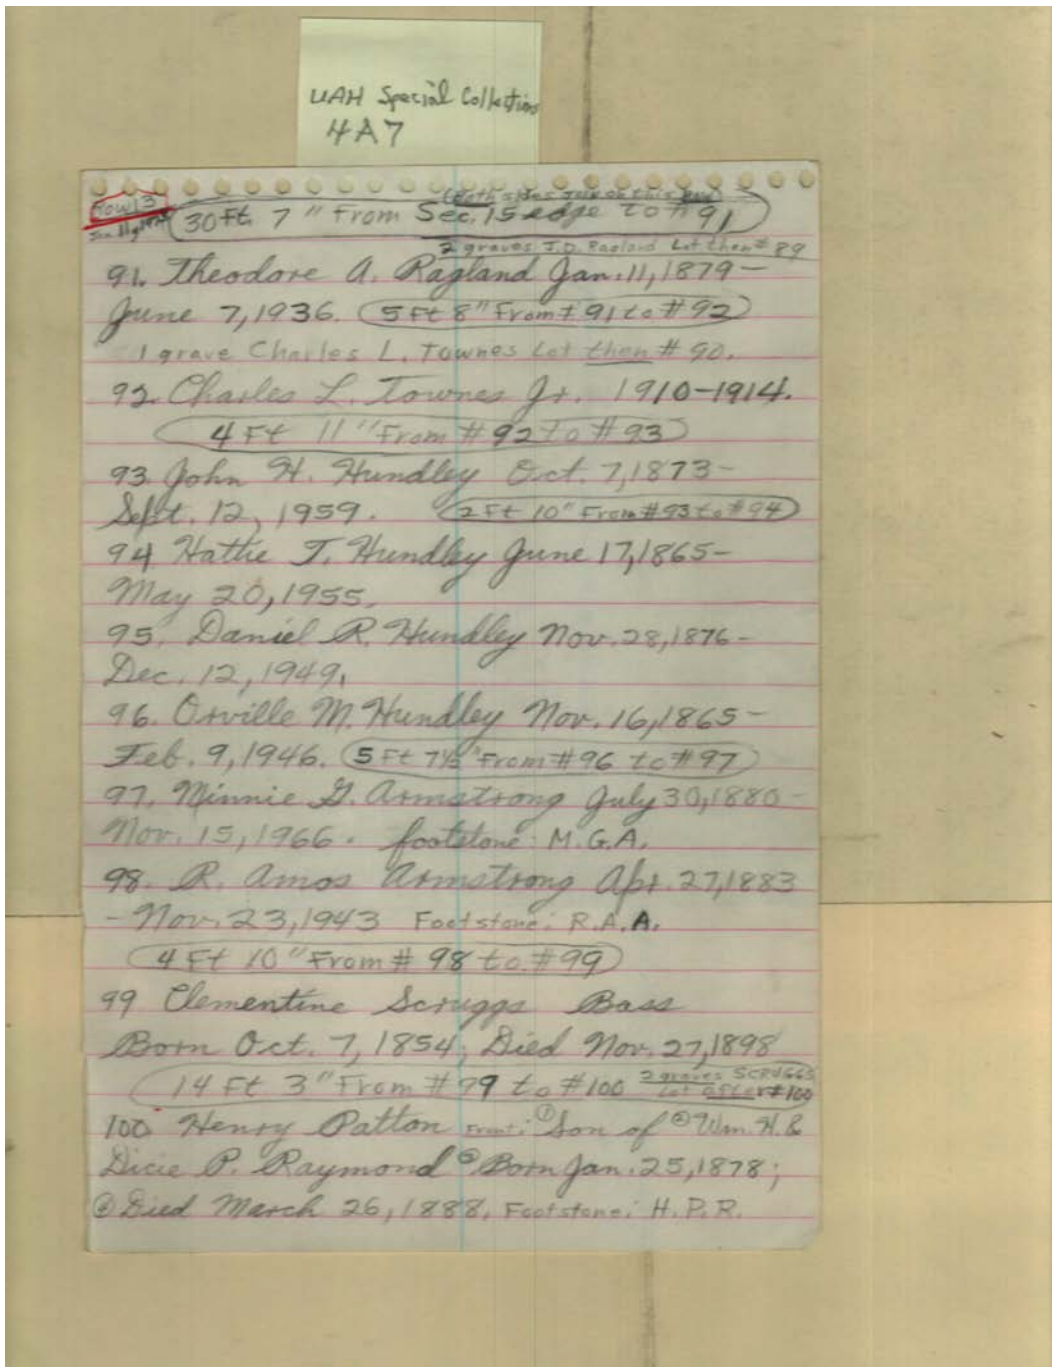 UAH Special Collection
4A7
Row 13
(Both sides          this Row)
30 Ft. 7" From Sec. 15 edge to # 91
2 graves J.D. Ragland Lot then # 89
91. Theodore A. Ragland Jan. 11, 1879-
June 7, 1936. (5 Ft 8" From # 91 to # 92)
1 grave Charles L. Townes Lot then # 90.
92. Charles L. Townes Jr. 1910-1914.
4 Ft 11" From # 92 to # 93
93. John H. Hundley Oct. 7, 1873-
Sept. 12, 1959. (2 Ft 10" From #93 to #94)
94 Hattie T. Hundley June 17, 1865-
May 20, 1955.
95. Daniel R. Hundley Nov. 28, 1876-
Dec. 12, 1949.
96. Orville M. Hundley Nov. 16, 1865-
Feb. 9, 1946. (5 Ft 7½" From #96 to #97)
97. Minnie G. Armstrong July 30, 1880-
Nov. 15, 1966. footstone: M.G.A.
98. R. Amos Armstrong Apr. 27, 1883
- Nov. 23, 1943 Footstone: R.A.A.
(4 Ft 10" From # 98 to #99)
99 Clementine Scruggs Bass
Born Oct. 7, 1854; Died Nov. 27, 1898
14 Ft 3" From # 99 to #100 2 graves SCRUGGS
Lot after #100
100 Henry Patton Front: ① Son of ② Wm. H. &
Dicie P. Raymond ③ Born Jan. 25, 1878;
④ Died March 26, 1888. Footstone: H.P.R.